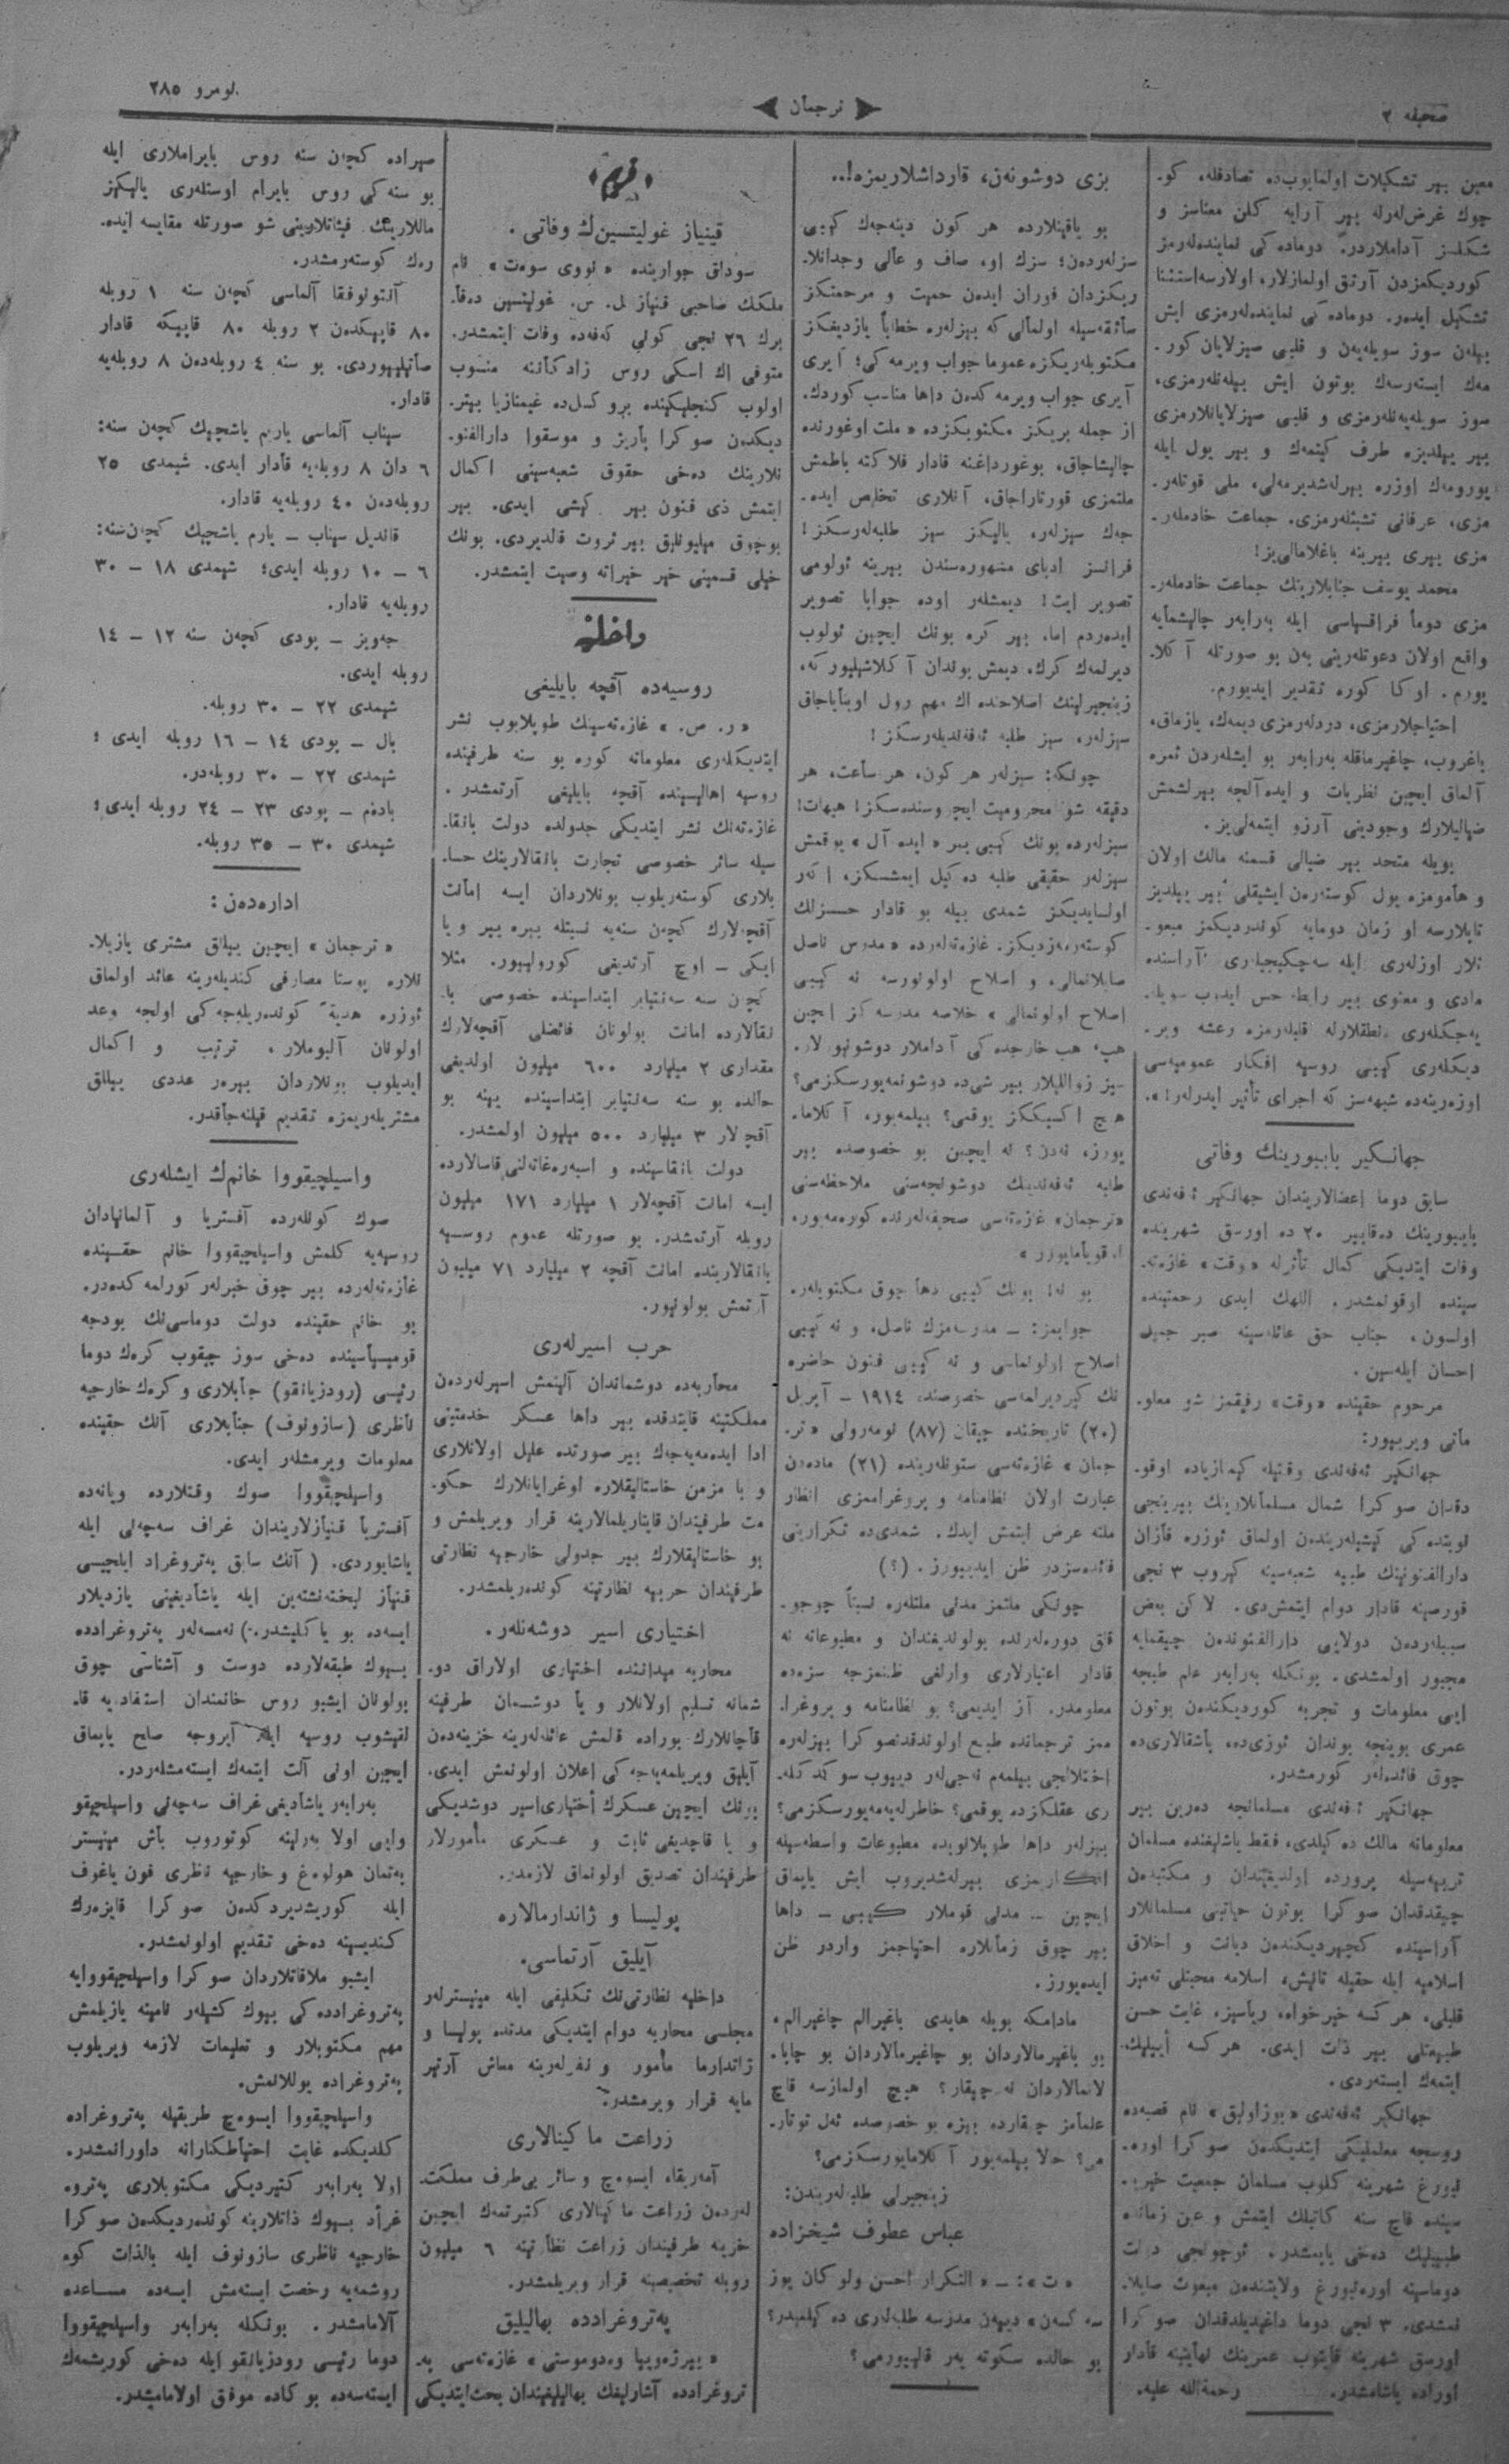 صحیفه ۲
ترجمان
نومرو ۲۸۵
معین بیر تشکیلات اولمایوب‌ده تصادفله، کو-
چوك غرض‌لرله بیر آرایه کلن معناسز و
شکلسز آداملاردر. دوماده کی نماینده‌لەرمز
کوردیکمزدن آرتق اولمازلار، اولارسه‌استثنا
تشکیل ایدەر. دوماده کی نماینده‌لەرمزی ایش
بیلەن سوز سویلەیەن و قلبی صیزلایان کور-
مەك ایستەرسەك بوتون ایش بیلەنلەرمزی،
سوز سویلەیەنلەرمزی و قلبی صیزلایانلارمزی
بیر ییلدیزه طرف کیتمەك و بیر یول ایله
یورومەك اوزره بیرلەشدیرمەلی، ملی قوتلەر-
مزی، عرفانی تشبثلەرمزی، جماعت خادملەر-
مزی بیری بیرینه باغلامالی‌یز!
محمد یوسف جنابلارینك جماعت خادملەر-
مزی دوما فراقسیاسی ایله بەرابەر چالیشمایه
واقع اولان دعوتلەرینی بەن بو صورتله آ کلا-
یورم. اوکا کوره تقدیر ایدیورم.
احتیاجلارمزی، دردلەرمزی دیمەك، یازماق،
باغروب، چاغیرماقله بەرابەر بو ایشلەردن ثمره
آلماق ایچین نظریات و ایده‌آلجه بیرلشمش
ضیالیلارك وجودینی آرزو ایتمەلی‌یز.
بویله متحد بیر ضیالی قسمنه مالك اولان
و هامومزه یول کوستەرەن ایشیقلی بیر ییلدیز
تاپلارسه او زمان دومایه کوندردیکمز مبعو-
ثلار اوزلەری ایله سەچکیجیلاری آراسنده
مادی و معنوی بیر رابطه حس ایدەب سویله-
یەجکلەری نطقلارله قلبلەرمزه رعشه ویر-
دیکلەری کیبی روسیه افکار عمومیەسی
اوزەرینەده شبهه‌سز که اجرای تأثیر ایدرلەر!.
جهانکیر بایبورینك وفاتی
سابق دوما اعضالاریندان جهانکیر ئەفەندی
بایبورینك دەقابیر ۲۰ ده اورسق شهرینده
وفات ایتدیکی کمال تأثرله «وقت» غازەتە-
سینده اوقونمشدر. اللهك ابدی رحمتینده
اولسون، جناب حق عائله‌سینه صبر جمیل
احسان ایله‌سین.
مرحوم حقینده «وقت» رفیقمز شو معلو-
ماتی ویریپور:
جهانکیر ئەفەندی وقتیله کیمنازیاده اوقو-
دقدان صوکرا شمال مسلمانلارینك بیرینجی
نوبتده کی کیشیلەریندەن اولماق ئوزره قازان
دارالفنونینك طبیه شعبه‌سینه کیروب ۳ نجی
قورصینه قادار دوام ایتمش‌دی. لاکن بعض
سببلەردەن دولایی دارالفنوندەن چیقمایه
مجبور اولمشدی. بونکله بەرابەر علم طبجه
ایی معلومات و تجربه کوردیکندەن بوتون
عمری بوینجه بوندان ئوزی‌ده، باشقالاری‌ده
چوق فائده‌لەر کورمشدر.
جهانکیر ئەفەندی مسلمانجه دەرین بیر
معلوماته مالك دەکیلدی، فقط باشلیغنده مسلمان
تربیه‌سیله پرورده اولدیغندان و مکتبدەن
چیقدقدان صوکرا بوتون حیاتینی مسلمانلار
آراسینده کچیردیکندەن دیانت و اخلاق
اسلامیه ایله حقیله تانیش، اسلامه محبتلی تەمیز
قلبلی، هرکسه خیرخواه، ریاسیز، غایت حسن
طبیعتلی بیر ذات ایدی. هرکسه ایپلیك
ایتمەك ایستەردی.
جهانکیر ئەفەندی «یوزاولیق» نام قصبه‌ده
روسجه معلملیکی ایتدیکدەن صوکرا اورە-
نبورغ شهرینه کلوب مسلمان جمعیت خیریە-
سینده قاچ سنه کاتبلك ایتمش و عین زمانده
طبیبلیك دەخی یاپمشدر. ئوچونجی دولت
دوماسینه اورەنبورغ ولایتندەن مبعوث صایلا-
نمشدی. ۳ نجی دوما داغیدیلدقدان صوکرا
اورسق شهرینه قایتوب عمرینك نهایتینه قادار
اوراده یاشامشدر. رحمةالله علیه.
بزی دوشونەن، قارداشلاریمزه!..
بو یاقینلارده هر کون دینەجەك کیبی
سزلەردەن؛ سزك او، صاف و عالی وجدانلا-
ریکزدان فوران ایدەن حمیت و مرحمتکز
سائقه‌سیله اولمالی که بیزلەره خطاباً یازدیغکز
مکتوبلەریکزه عموما جواب ویرمه کی؛ آیری
آیری جواب ویرمه کدەن داها مناسب کوردك.
از جمله بریکز مکتوبکزده «ملت اوغورنده
چالیشاجاق، بوغورداغنه قادار فلاکته باطمش
ملتمزی قورتاراجاق، آنلاری تخلیص ایدە-
جەك سیزلەر، یالیکز سیز طلبه‌لەرسکز!
فرانسز ادبای مشهوره‌سندن بیرینه ئولومی
تصویر ایت! دیمشلەر اوده جوابا تصویر
ایدەردم اما، بیر کره بونك ایچین ئولوب
دیرلمەك کرك، دیمش بوندان آکلاشیلیور که،
زینجیرلینك اصلاحنده اك مهم رول اوینایاجاق
سیزلەر، سیز طلبه ئەفەندیلەرسکز!
چونکه: سیزلەر هر کون، هر ساعت، هر
دقیقه شو محرومیت ایچروسنده‌سکز! هیهات!
سیزلەرده بونك کیبی بیر «ایده آل» یوقمش
سیزلەر حقیقی طلبه دەکیل ایمشسکز، اکەر
اولسایدیکز شمدی بیله بو قادار حسزلك
کوستەرمەزدیکز. غازەتەلەرده «مدرس ناصل
صایلانمالی، و اصلاح اولونورسه نه کیبی
اصلاح اولونمالی» خلاصه مدرسه کز ایچین
هپ، هب خارجده کی آداملار دوشونیورلار.
سیز زواللیلار بیر شی‌ده دوشونمەیورسکزمی؟
هیچ اکسیککز یوقمی؟ بیلمەیور، آکلاما-
یورز، نەدن؟ نه ایچین بو خصوصده بیر
طلبه ئەفەندینك دوشونجه‌سنی ملاحظه‌سنی
«ترجمان» غازەتەسی صحیفه‌لەرنده کورەمەیور،
اوقویامایورز»
بو نه! بونك کیبی دها چوق مکتوبلەر.
جوابمز: – مدرسه‌مزك ناصل، و نه کیبی
اصلاح اولونماسی و نه کیبی فنون حاضره
نك کیردیرلمه‌سی خصوصنده ۱۹۱٤ – آپریل
(۲۰) تاریخنده چیقان (۸۷) نومەرولی «تر-
جمان» غازەتەسی ستونلەرینده (۲۱) مادەدن
عبارت اولان نظامنامه و پروغراممزی انظار
ملته عرض ایتمش ایدك. شمدی‌ده تکرارینی
فائده‌سزدر ظن ایدیپورز. (؟)
چونکی ملتمز مدنی ملتلەره نسبتاً چوجو-
قلق دورەلەرنده بولوندیغندان و مطبوعاته نه
قادار اعتبارلاری وارلغی ظنمزجه سزەده
معلومدر. آز ایدیمی؟ بو نظامنامه و پروغرا-
ممز ترجمانده طبع اولوندقدنصوکرا بیزلەره
اختلالجی بیلمەم نەجی‌لەر دیپوب سوکدکلە-
ری عقلکزده یوقمی؟ خاطرلەیەمەیورسکزمی؟
بیزلەر داها طوپلانوبده مطبوعات واسطه‌سیله
افکاریمزی بیرلەشدیروب ایش یاپماق
ایچین – مدنی قوملار کیبی – داها
بیر چوق زمانلاره احتیاجمز واردر ظن
ایدەیورز.
مادامکه بویله هایدی باغیرالم چاغیرالم،
بو باغیرمالاردان بو چاغیرمالاردان بو چابا-
لانمالاردان نه چیقار؟ هیچ اولمازسه قاچ
علمامز چیقارده بیزه بو خصوصده ئەل توتار-
می؟ حالا بیلمەیور آکلامایورسکزمی؟
زینجیرلی طلبه‌لەریندن:
عباس عطوف شیخزاده
«ت»: – «التکرار احسن ولو کان یوز
سه کسەن» دیپەن مدرسه طلبه‌لەری دەکیلمیدر؟
بو حالده سکوته یەر قالیپورمی؟
قریم
قینیاز غولیتسین‌ك وفاتی.
سوداق جوارینده «نووی سوەت» نام
ملکك صاحبی قنیاز ل. س. غولیتسین دەقا-
برك ۲٦ نجی کونی کەفەده وفات ایتمشدر.
متوفی اك اسکی روس زادکاننه منسوب
اولوب کنجلیکینده بروکسل‌ده غیمنازیا بیتر-
دیکدەن صوکرا پاریز و موسقوا دارالفنو-
نلارینك دەخی حقوق شعبه‌سینی اکمال
ایتمش ذی فنون بیر کیشی ایدی. بیر
بوچوق میلیونلق بیر ثروت قالدیردی. بونك
خیلی قسمینی خیر خیراته وصیت ایتمشدر.
داخلیه
روسیه‌ده آقچه بایلیغی
«ر. ص.» غازەتەسینك طوپلابوب نشر
ایتدیکلەری معلوماته کوره بو سنه طرفینده
روسیه اهالیسینده آقچه بایلیغی آرتمشدر.
غازەتەنك نشر ایتدیکی جدولده دولت بانقا-
سیله سائر خصوصی تجارت بانقالارینك حسا-
بلاری کوستەریلوب بونلاردان ایسه امانت
آقچه‌لارك کچن سنه‌یه نسبتله بیره بیر و یا
ایکی – اوچ آرتدیغی کورولیپور. مثلا
کچن سنه سەنتیابر ابتداسینده خصوصی با-
نقالارده امانت بولونان فائضلی آقچه‌لارك
مقداری ۲ میلیارد ٦۰۰ میلیون اولدیغی
حالده بو سنه سەنتیابر ابتداسینده یینه بو
آقچه‌لار ۳ میلیارد ۵۰۰ میلیون اولمشدر.
دولت بانقاسینده و اسبەرەغاتەلنی قاسالارده
ایسه امانت آقچه‌لار ۱ میلیارد ۱۷۱ میلیون
روبله آرتمشدر. بو صورتله عموم روسیه
بانقالارینده امانت آقچه ۲ میلیارد ۷۱ میلیون
آرتمش بولونیور.
حرب اسیرلەری
محاربه‌ده دوشماندان آلینمش اسیرلەردەن
مملکتینه قایتدقده بیر داها عسکر خدمتینی
ادا ایدەمەیەجەك بیر صورتده علیل اولانلاری
و یا مزمن خاستالیقلاره اوغرایانلارك حکو-
مت طرفیندان قایتاریلمالارینه قرار ویریلمش و
بو خاستالیقلارك بیر جدولی خارجیه نظارتی
طرفیندان حربیه نظارتینه کوندەریلمشدر.
اختیاری اسیر دوشەنلەر.
محاربه میداننده اختیاری اولاراق دو-
شمانه تسلیم اولانلار و یا دوشمان طرفینه
قاچانلارك بوراده قالمش عائله‌لەرینه خزینەدەن
آیلیق ویریلمەیەجه کی اعلان اولونمش ایدی.
بونك ایچین عسکرك اختیاری‌اسیر دوشدیکی
و یا قاچدیغی ثابت و عسکری مأمورلار
طرفیندان تصدیق اولونماق لازمدر.
پولیسا و ژاندارمالاره
آیلیق آرتماسی.
داخلیه نظارتی‌نك تکلیفی ایله مینیسترلەر
مجلسی محاربه دوام ایتدیکی مدتده پولیسا و
ژاندارما مأمور و نفرلەرینه معاش آرتیر
مایه قرار ویرمشدر.
زراعت ماکینالاری
آمەریقا، ایسوەچ و سائر بی‌طرف مملکت-
لەردەن زراعت ماکینالاری کتیرتمەك ایچین
خزینه طرفیندان زراعت نظارتینه ٦ میلیون
روبله تخصیصینه قرار ویریلمشدر.
پەتروغرادده بهالیلیق
«بیرژەویپا وەدوموستی» غازەتەسی پە-
تروغرادده آشارلیقك بهالیلیغیندان بحث‌ایتدیکی
صیراده کچن سنه روس بایراملاری ایله
بو سنه کی روس بایرام اوستلەری یالیکیز
ماللارینك فیئاتلارینی شو صورتله مقایسه ایدە-
رەك کوستەرمشدر.
آنتونوفقا آلماسی کچن سنه ۱ روبله
۸۰ قاپیکدەن ۲ روبله ۸۰ قاپیکه قادار
صاتیلیپوردی. بو سنه ٤ روبله‌دەن ۸ روبله‌یه
قادار.
سیناب آلماسی یاریم یاشچیك کچەن سنه:
٦ دان ۸ روبله‌یه قادار ایدی. شیمدی ۲۵
روبله‌دەن ٤۰ روبله‌یه قادار.
قاندیل سیناب – یارم یاشچیك کچەن‌سنه:
٦ – ۱۰ روبله ایدی؛ شیمدی ۱۸ – ۳۰
روبله‌یه قادار.
جەویز – پودی کچەن سنه ۱۲ – ۱٤
روبله ایدی.
شیمدی ۲۲ – ۳۰ روبله.
بال – پودی ۱٤ – ۱٦ روبله ایدی؛
شیمدی ۲۲ – ۳۰ روبله‌در.
بادەم – پودی ۲۳ – ۲٤ روبله ایدی؛
شیمدی ۳۰ – ۳۵ روبله.
ادارەدەن:
«ترجمان» ایچین ییللق مشتری یازیلا-
نلاره پوستا مصارفی کندیلەرینه عائد اولماق
ئوزره هدیةً کوندەریله‌جه کی اولجه وعد
اولونان آلبوملار، ترتیب و اکمال
ایدیلوب بونلاردان بیرەر عددی ییللق
مشتریلەریمزه تقدیم قیلنەجاقدر.
واسیلچیقووا خانم‌ك ایشلەری
صوك کونلەرده آفستریا و آلمانیادان
روسیه‌یه کلمش واسیلچیقووا خانم حقینده
غازەتەلەرده بیر چوق خبرلەر کورلمه کدەدر.
بو خانم حقینده دولت دوماسی‌نك بودجه
قومیسیاسینده دەخی سوز چیقوب کرەك دوما
رئیسی (رودزیانقو) جنابلاری و کرەك خارجیه
ناظری (سازونوف) جنابلاری آنك حقینده
معلومات ویرمشلەر ایدی.
واسیلچیقووا صوك وقتلارده ویانەده
آفستریا قنیازلاریندان غراف سەچەنی ایله
یاشایوردی. (آنك سابق پەتروغراد ایلچیسی
قنیاز لیختەنشتەین ایله یاشادیغینی یازدیلار
ایسەده بو یاکلیشدر.) نەمسەلەر پەتروغرادده
بیوك طبقه‌لارده دوست و آشناسی چوق
بولونان ایشبو روس خانمندان استفادەیه قا-
لقیشوب روسیه ایله آیروجه صلح یاپماق
ایچین اونی آلت ایتمەك ایستەمشلەردر.
بەرابەر یاشادیغی غراف سەچەنی واسیلچیقو
وایی اولا بەرلینه کوتوروب باش مینیستر
بەتمان هولوەغ و خارجیه ناظری فون یاغوف
ایله کوریشدیردکدەن صوکرا قایزەرك
کندیسینه دەخی تقدیم اولونمشدر.
ایشبو ملاقاتلاردان صوکرا واسیلچیقووایه
پەتروغرادده کی بیوك کشیلەر نامینه یازیلمش
مهم مکتوبلار و تعلیمات لازمه ویریلوب
پەتروغراده یوللانمش.
واسیلچیقووا ایسوەچ طریقیله پەتروغراده
کلدیکده غایت احتیاطکارانه داورانمشدر.
اولا بەرابەر کتیردیکی مکتوبلاری پەترو-
غراد بیوك ذاتلارینه کوندەردیکدەن صوکرا
خارجیه ناظری سازونوف ایله بالذات کو-
روشمەیه رخصت ایستەمش ایسەده مساعده
آلامامشدر. بونکله بەرابەر واسیلچیقووا
دوما رئیسی رودزیانقو ایله دەخی کوریشمەك
ایستەسەده بو کاده موفق اولامامشدر.